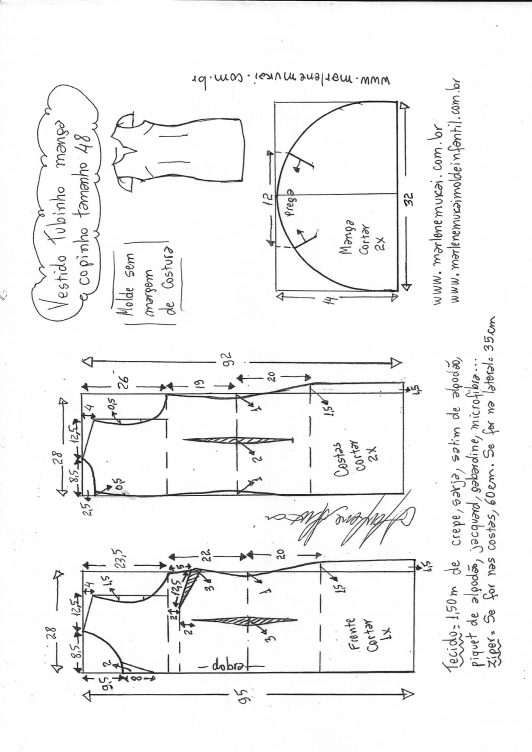 Vestido Tubinho manga
copinho tamanho 48
Molde sem
margem
de Costura
www.marlenemukai.com.br
12
prega
Manga
Cortar
2X
14
32
www.marlenemukai.com.br
www.marlenemukaimoldeinfantil.com.br
92
26
19
20
28
12,5
8,5
4
0,5
2,5
0,5
1
2
1
1,5
1,5
Costas
cortar
2X
23,5
22
20
28
12,5
8,5
4
1,5
5
12,5
3
2
2
1
3
1,5
1,5
2
9,5
8
dobra
Frente
Cortar
1X
95
Tecido = 1,50 m de crepe, sarja, satim de algodão,
piquet de algodão, jacquard, gabardine, microfibra...
Ziper = Se for nas costas, 60 cm. Se for na lateral = 35 cm